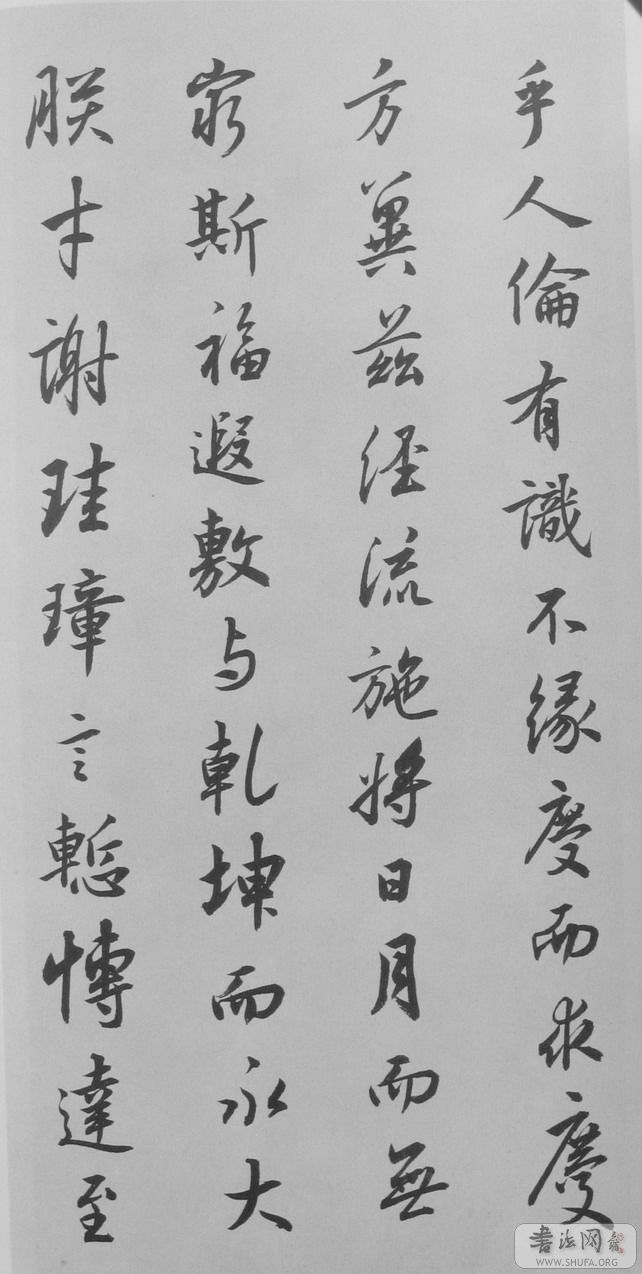 乎人倫有識不緣慶而求慶
方冀茲經流施將日月而無
窮斯福遐敷與乾坤而永大
朕才謝珪璋言慙博達至
书法网
WWW.SHUFA.ORG